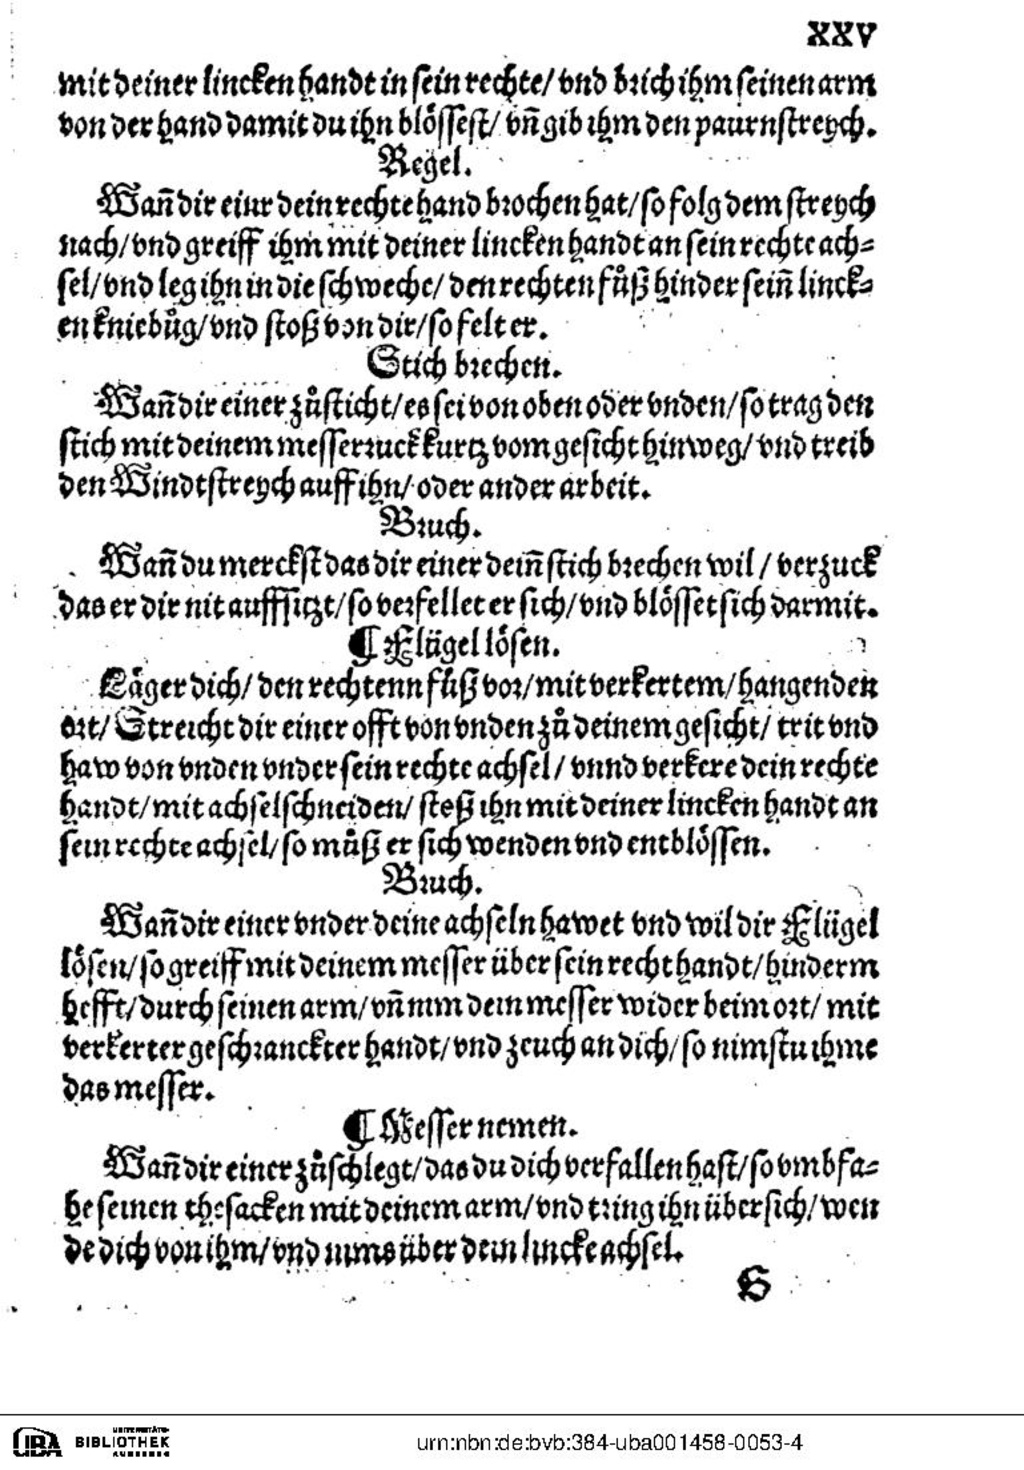 XXV
mit deiner lincken handt in sein rechte/ vnd brich ihm seinen arm
von der hand damit du ihn blössest/ vn̄ gib ihm den paurnstreych.
Regel.
Wan̄ dir einr dein rechte hand brochen hat/ so folg dem streych
nach/ vnd greiff ihm mit deiner lincken handt an sein rechte ach⸗
sel/ vnd leg ihn in die schweche/ den rechten fůß hinder sein̄ linck⸗
en kniebůg/ vnd stoß von dir/ so felt er.
Stich brechen.
Wan̄ dir einer zůsticht/ es sei von oben oder vnden/ so trag den
stich mit deinem messer ruck kurtz vom gesicht hinweg/ vnd treib
den Windtstreych auff ihn/ oder ander arbeit.
Bruch.
Wan̄ du merckst das dir einer dein̄ stich brechen wil/ verzuck
das er dir nit auffsitzt/ so verfellet er sich/ vnd blösset sich darmit.
¶ Flügel lösen.
Läger dich/ den rechtenn fůß vor/ mit verkertem/ hangenden
ort/ Streicht dir einer offt von vnden zů deinem gesicht/ trit vnd
haw von vnden vnder sein rechte achsel/ vnnd verkere dein rechte
handt/ mit achselschneiden/ stoß ihn mit deiner lincken handt an
sein rechte achsel/ so můß er sich wenden vnd entblössen.
Bruch.
Wan̄ dir einer vnder deine achseln hawet vnd wil dir Flügel
lösen/ so greiff mit deinem messer über sein recht handt/ hinderm
hefft/ durch seinen arm/ vn̄ nim dein messer wider beim ort/ mit
verkerter geschranckter handt/ vnd zeuch an dich/ so nimstu ihme
das messer.
¶ Messer nemen.
Wan̄ dir einer zůschlegt/ das du dich verfallen hast/ so vmbfa⸗
he seinen thesacken mit deinem arm/ vnd tring ihn über sich/ wen
de dich von ihm/ vnd nims über dein lincke achsel.
G
UBA UNIVERSITÄTS-
BIBLIOTHEK
AUGSBURG
urn:nbn:de:bvb:384-uba001458-0053-4